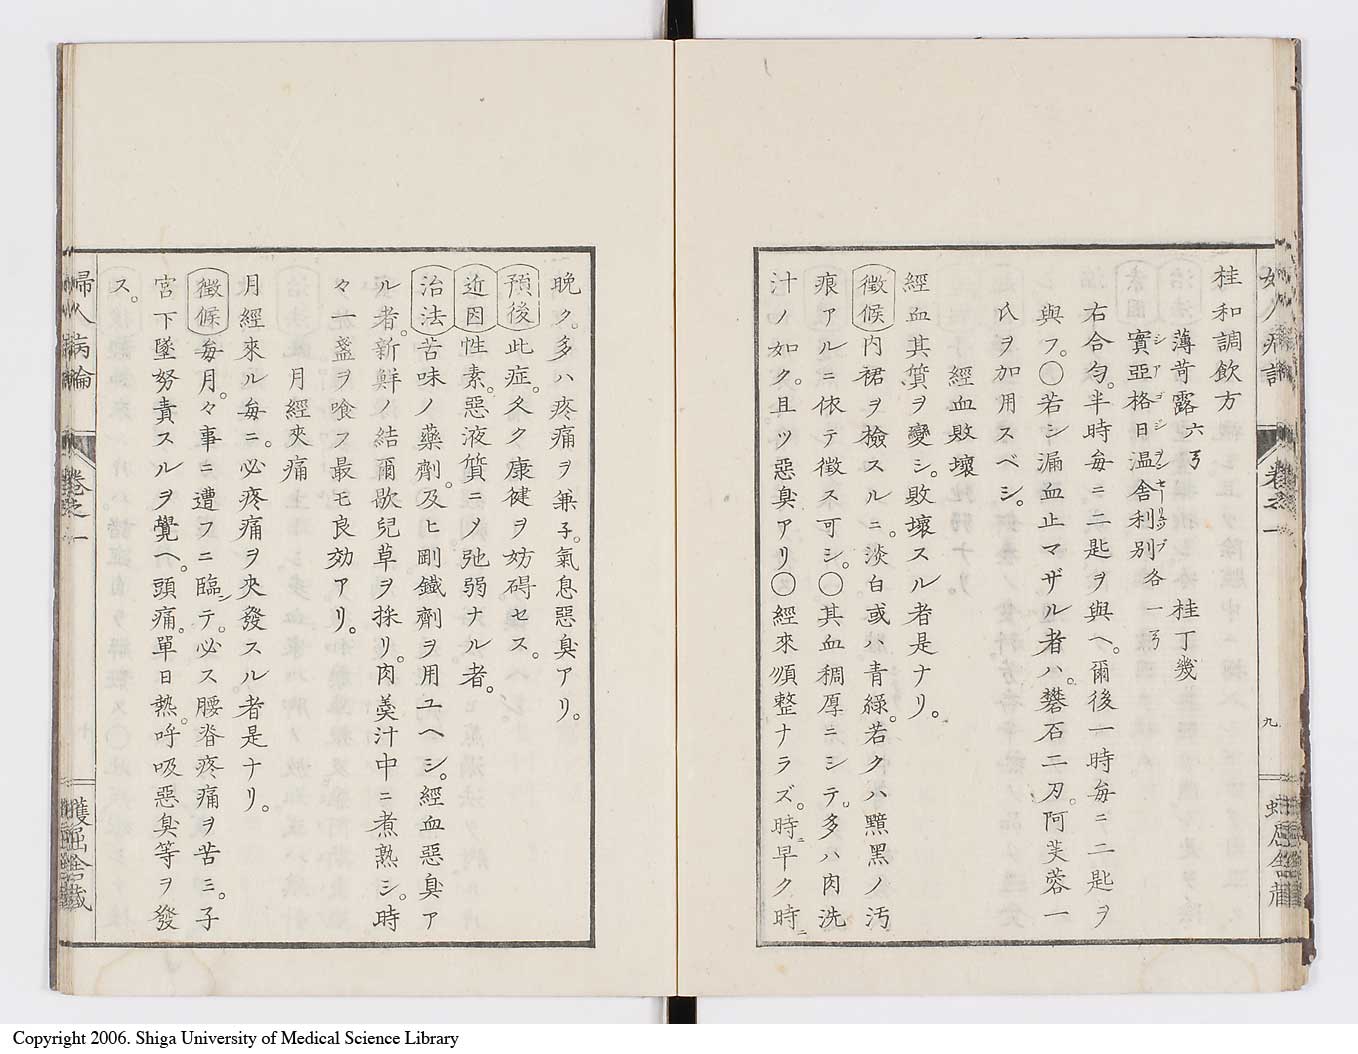 桂和調飲方
薄苛露六㐅 桂丁幾
實亞格日温舎利別各一㐅
右合匀。半時毎ニ二匙ヲ與ヘ。爾後一時毎ニ二匙ヲ
與フ。〇若シ漏血止マザル者ハ。礬石二刃。阿芙蓉一
氏ヲ加用スベシ。
經血敗壞
經血其質ヲ變シ。敗壞スル者是ナリ。
徴候内裙ヲ撿スルニ。淡白或ハ青緑。若クハ黯黒ノ汚
痕アルニ依テ徴ス可シ。〇其血稠厚ニシテ。多ハ肉洗
汁ノ如ク。且ツ惡臭アリ〇經來順整ナラズ。時ニ早ク時ニ
九
晩ク。多ハ疼痛ヲ兼子。氣息惡臭アリ。
預後此症。久ク康健ヲ妨碍セス。
近因性素。惡液質ニノ弛弱ナル者。
治法苦味ノ藥劑。及ヒ剛鐵劑ヲ用ユヘシ。經血惡臭ア
ル者。新鮮ノ結爾歇兒草ヲ採リ。肉羮汁中ニ煮熟シ。時
々一盞ヲ喰フ最モ良効アリ。
月經夾痛
月經來ル毎ニ。必疼痛ヲ夾發スル者是ナリ。
徴候毎月。々事ニ遭フニ臨テ。必ス腰脊疼痛ヲ苦ミ。子
宮下墜努責スルヲ覺ヘ。頭痛。單日熱。呼吸惡臭等ヲ發
ス。
婦人病論 卷之一
蠖屈舎藏
Copyright 2006. Shiga University of Medical Science Library